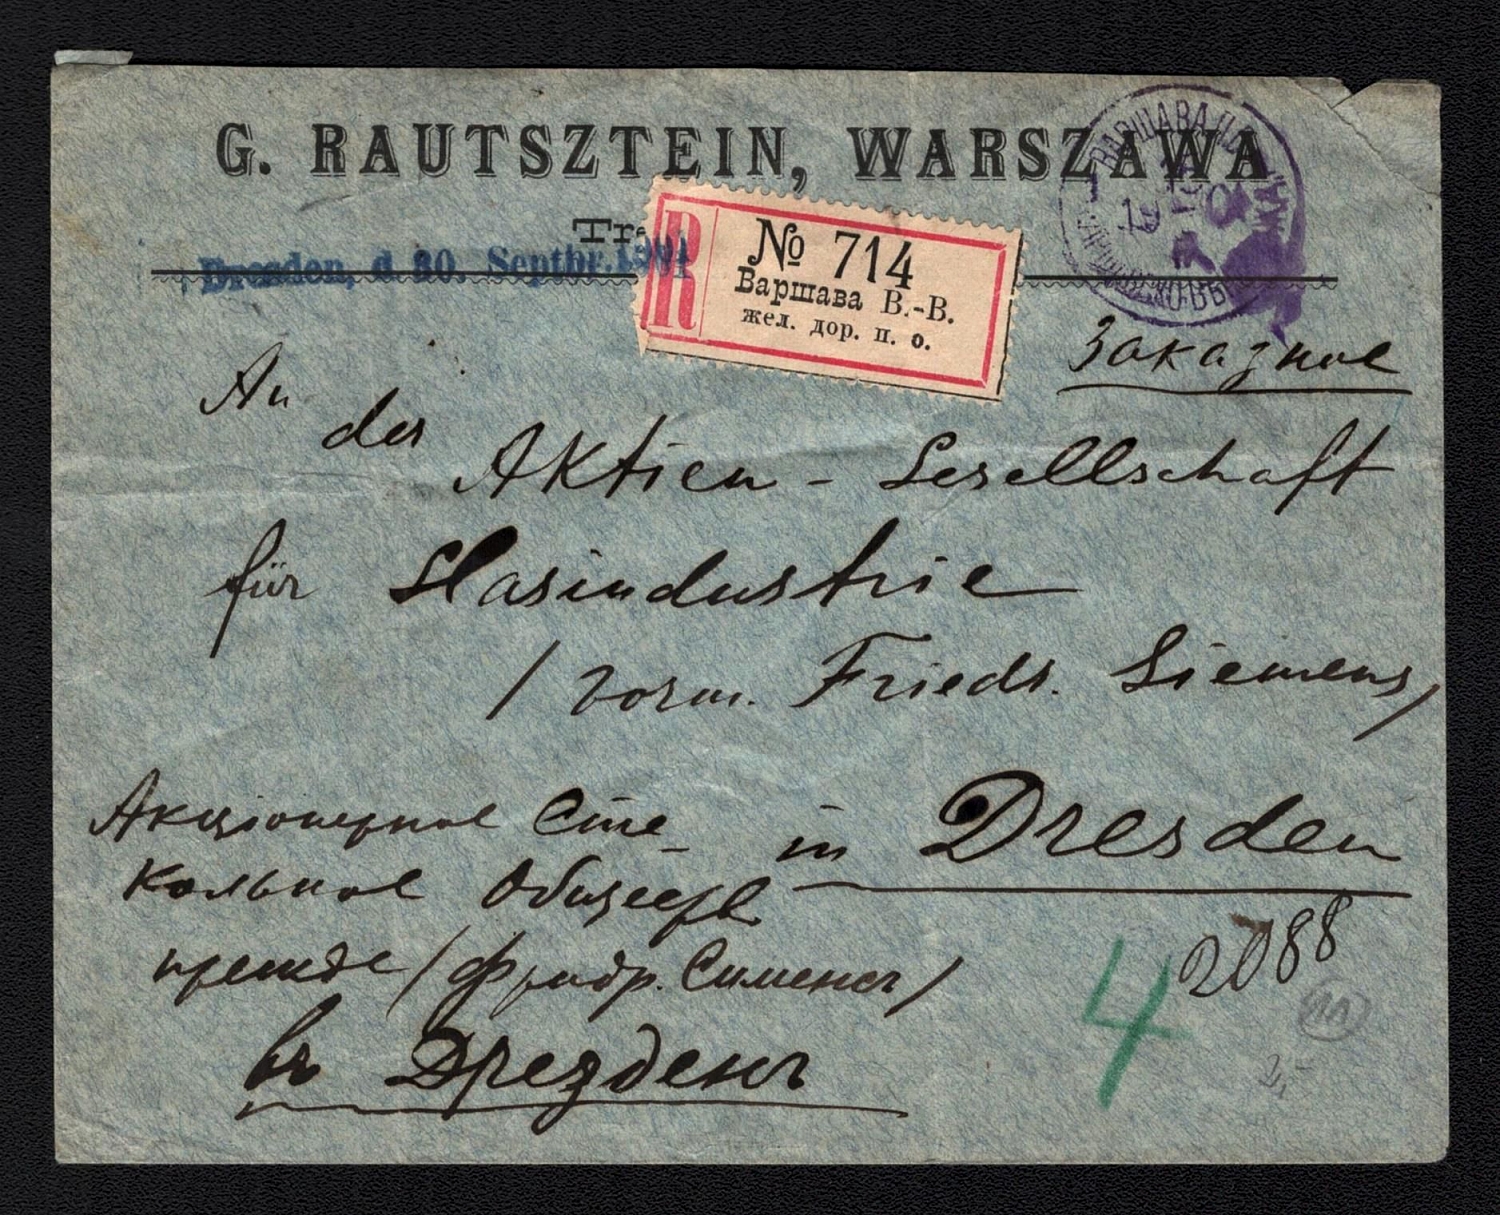 G. RAUTSZTEIN, WARSZAWA
Dresden, d 30. Septbr. 1901
R
№ 714
Варшава В.-В.
жел. дор. п. о.
ВАРШАВА
Заказное
An
der
Aktien - Gesellschaft
für Glasindustrie
/ vorm. Friedr. Siemens /
in Dresden
Акціонерное Сте-
кольное Обществ
прежде / Фридр. Сименсъ /
въ Дрезденъ
4
2088